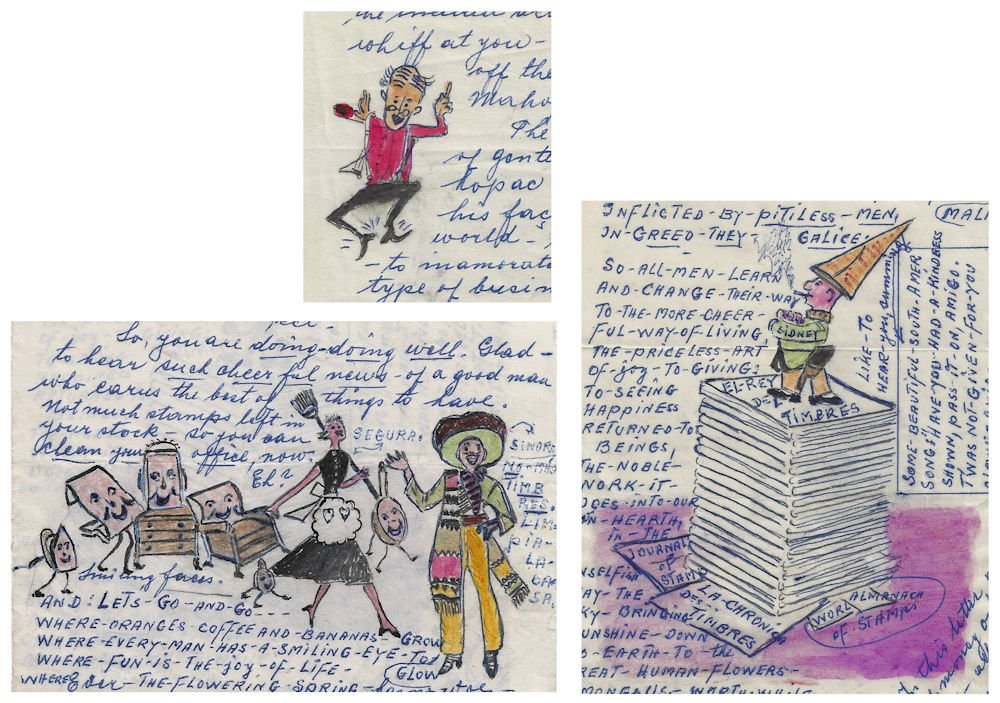 whiff at you -
off the
The
of gente
hopac
his fac
world -
- to inamorat
type of busin
So, you are doing - doing well. Glad -
to hear such cheerful news - of a good man
who carves the best of things to have.
Not much stamps left in
your stock - so you can
clean your office, now.
Eh?
SEGURA!
SINOR,
NO-MAS
TIMB
RES.
LIM-
PIA-
LA-
CA-
SA,
Smiling faces.
AND: LETS-GO-AND-GO----
WHERE-ORANGES-COFFEE AND-BANANAS-GROW
WHERE-EVERY-MAN-HAS-A-SMILING-EYE-TO
WHERE-FUN-IS-THE-JOY-OF-LIFE- GLOW
WHERE Ever-THE-FLOWERING-SPRING-
INFLICTED-BY-PITILESS-MEN,
IN-GREED-THEY- GALICE:
MALI
SO-ALL-MEN-LEARN
AND-CHANGE-THEIR-WAY
TO-THE-MORE-CHEER-
FUL-WAY-OF-LIVING,
THE-PRICELESS-ART,
OF-JOY-TO-GIVING:
TO-SEEING
HAPPINESS
RETURNED-TO
BEINGS,
THE-NOBLE-
WORK-IT-
DOES-INTO-OUR
OWN-HEARTH,
IN-THE
AY-THE
KY-BRINGING
UNSHINE-DOWN
S-EARTH-TO the
REAT-HUMAN-FLOWERS-
MONGALIS-WORTH-WHILE
SIDNEY
EL-REY
DE-
TIMBRES
LIKE-TO
HEAR-you-humming
SOME-BEAUTIFUL-SOUTH-AMER
SONG: HAVE-YOU-HAD-A-KINDNESS
SHOWN, PASS-IT-ON, AMIGO.
TWAS-NOT-GIVEN-FOR-YOU
JOURNAL
OF
STAMPS
LA-CHRONICA
DES-
TIMBRES
WORLD ALMANACH
OF-STAMPS
this letter